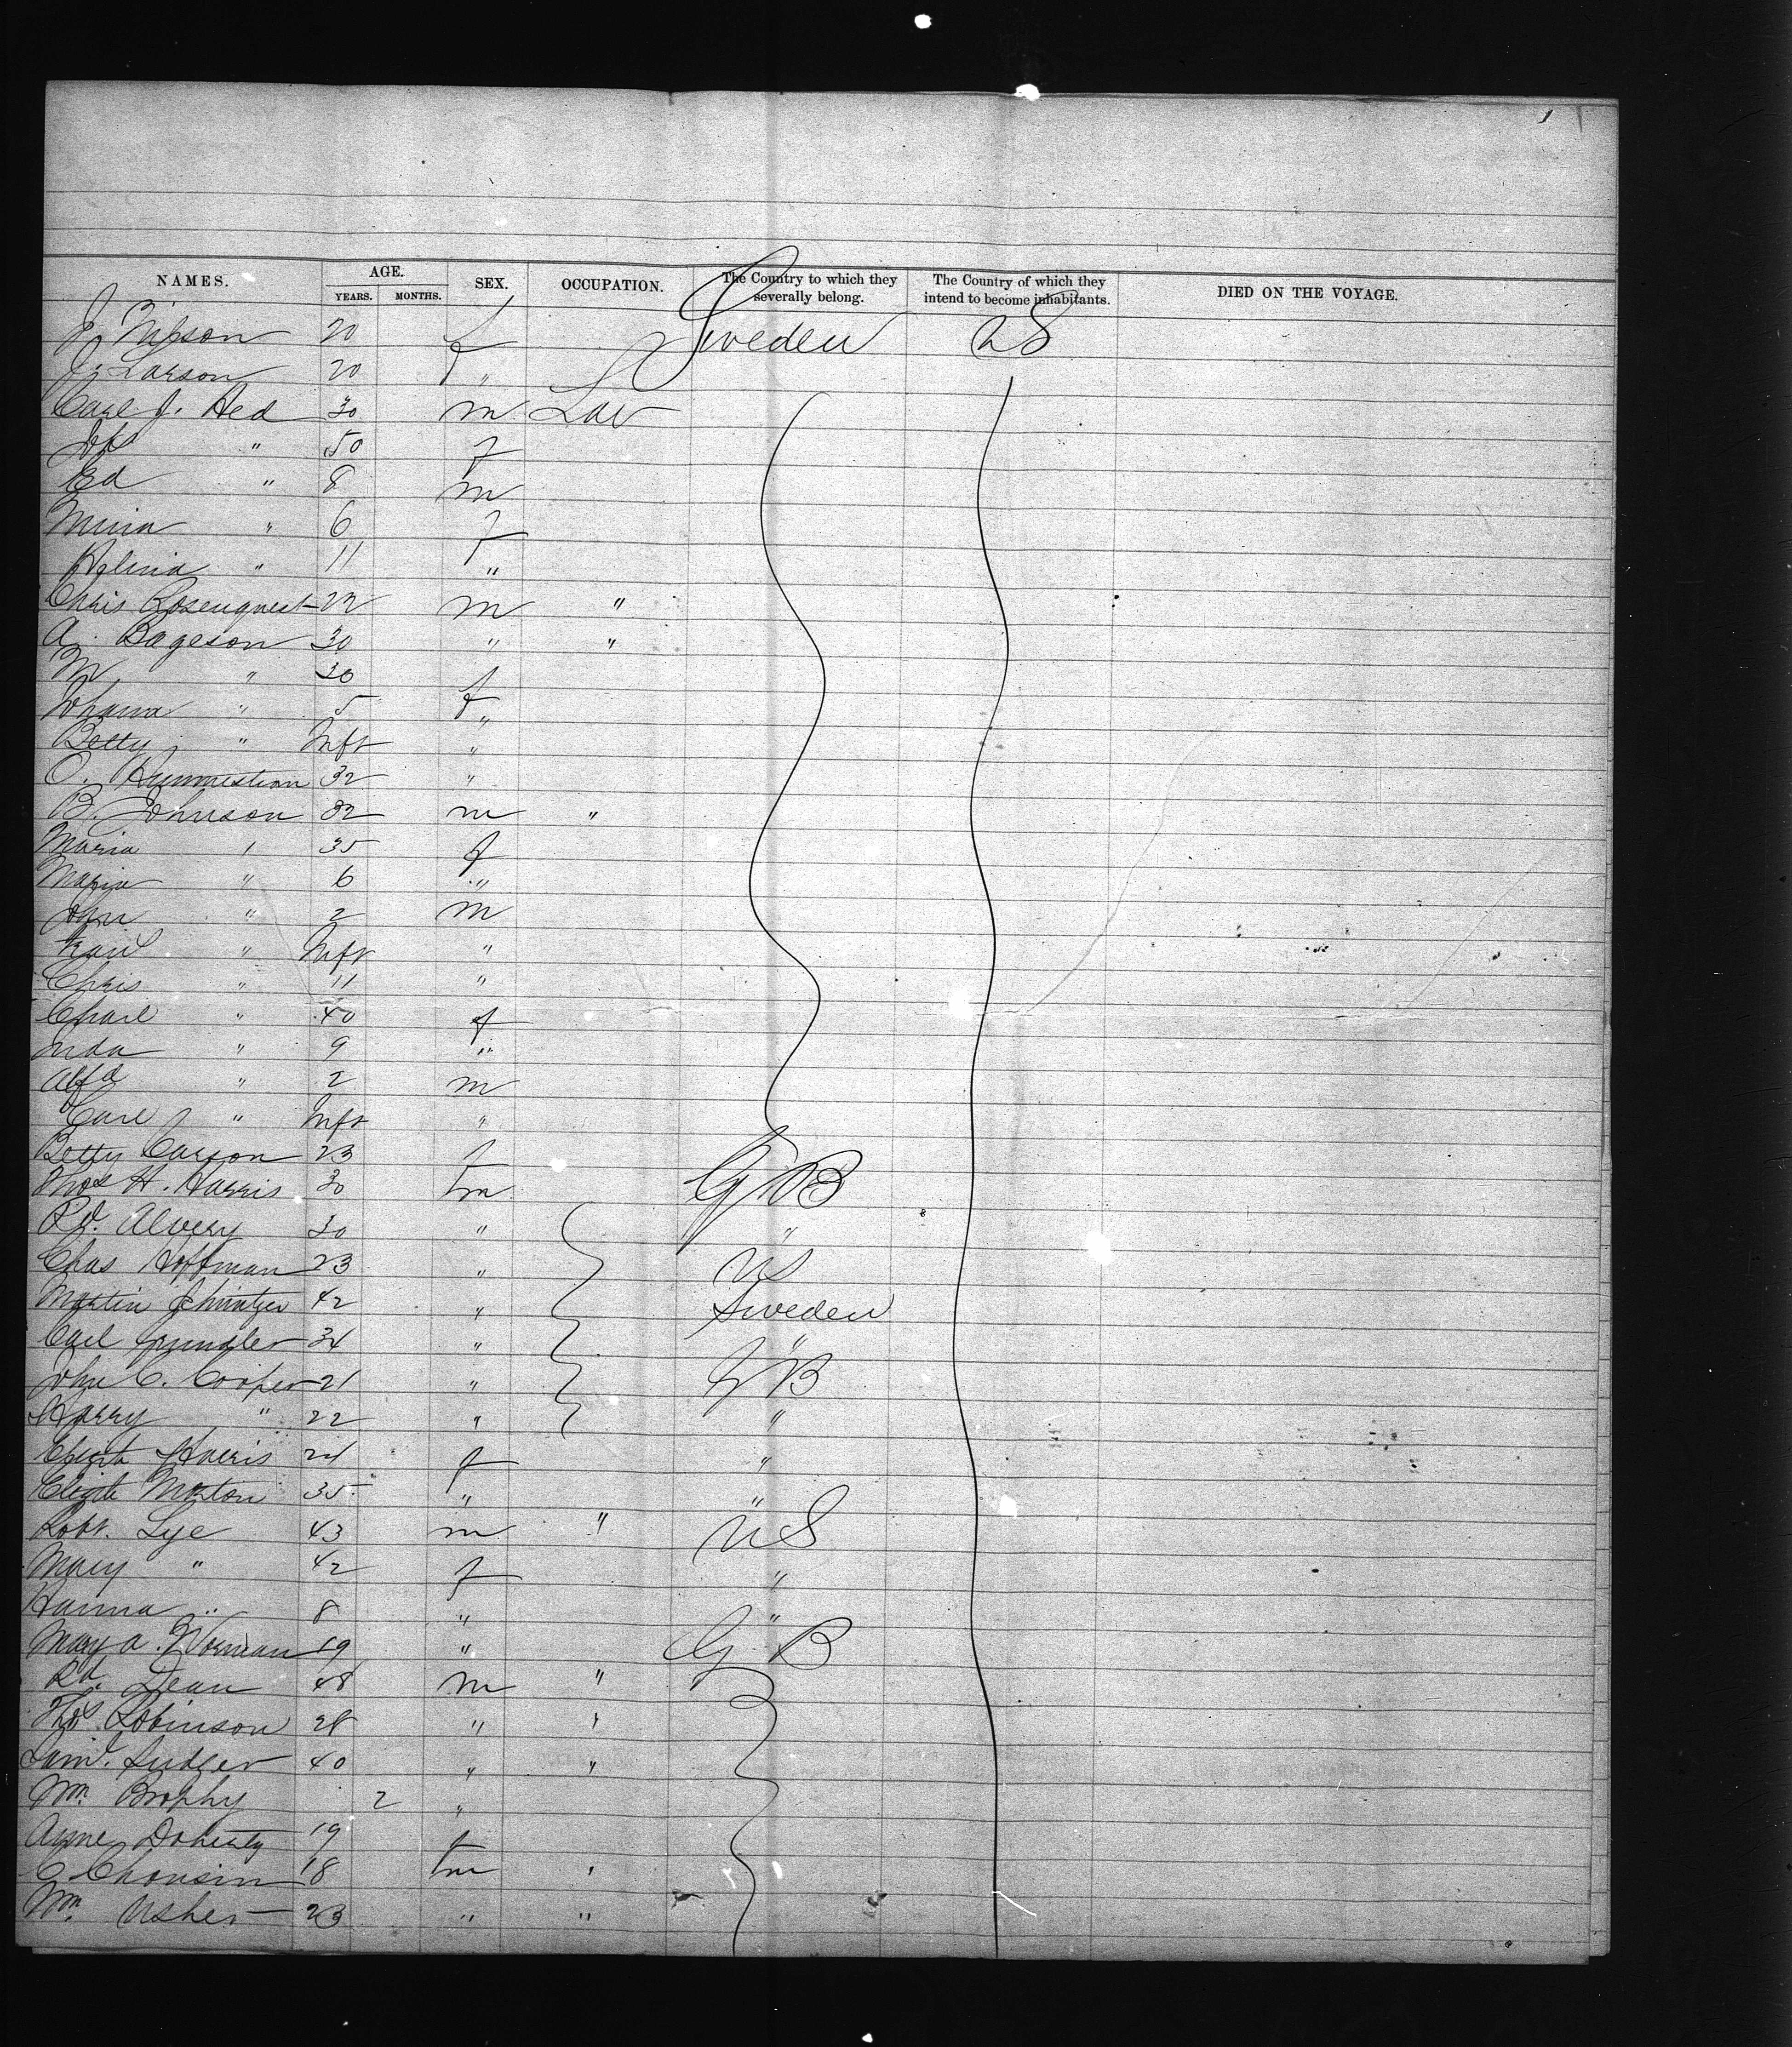 1
NAMES. AGE. SEX. OCCUPATION. The Country to which they severally belong. The Country of which they intend to become inhabitants. DIED ON THE VOYAGE.
YEARS. MONTHS.
J. Nilson 20 f Sweden US
J. Larson 20 "
Carl J. Hed 30 m Lab
" 50 f
Ed " 8 m
Minia " 6 f
Helina " 11 "
Chris Rosenquest 22 m "
A. Bageson 30 " "
M " 30 f
Johana " 5 "
Betty " Inft "
O. 32 "
B. Johnson 32 m "
Maria " 35 f
Maria " 6 "
John " 2 m
Karl " Inft "
Chris " 11 "
Charl " 40 f
Inda " 9 "
Alfd " 2 m
Carl " Inft "
Betty Carson 23 f
Thos H. Harris 30 m GB
Rd. Alvery 30 " "
Chas Hoffman 23 " US
Martin 42 " Sweden
Carl Grundler 34 " "
John C. Cooper 21 " GB
Harry " 22 " "
Elizth Harris 24 f "
Elizth Morton 35 " "
Robt. Lye 43 m " US
Mary " 42 f "
Hanna " 8 " "
Mary A. Norman 19 " G B
Rd. Dean 48 m "
Thos. Robinson 28 " "
Saml. 40 " "
Wm. Brophy 2 "
Anne Doherty 19 f
C. Chonsin 18 m "
Wm. Usher 23 " "